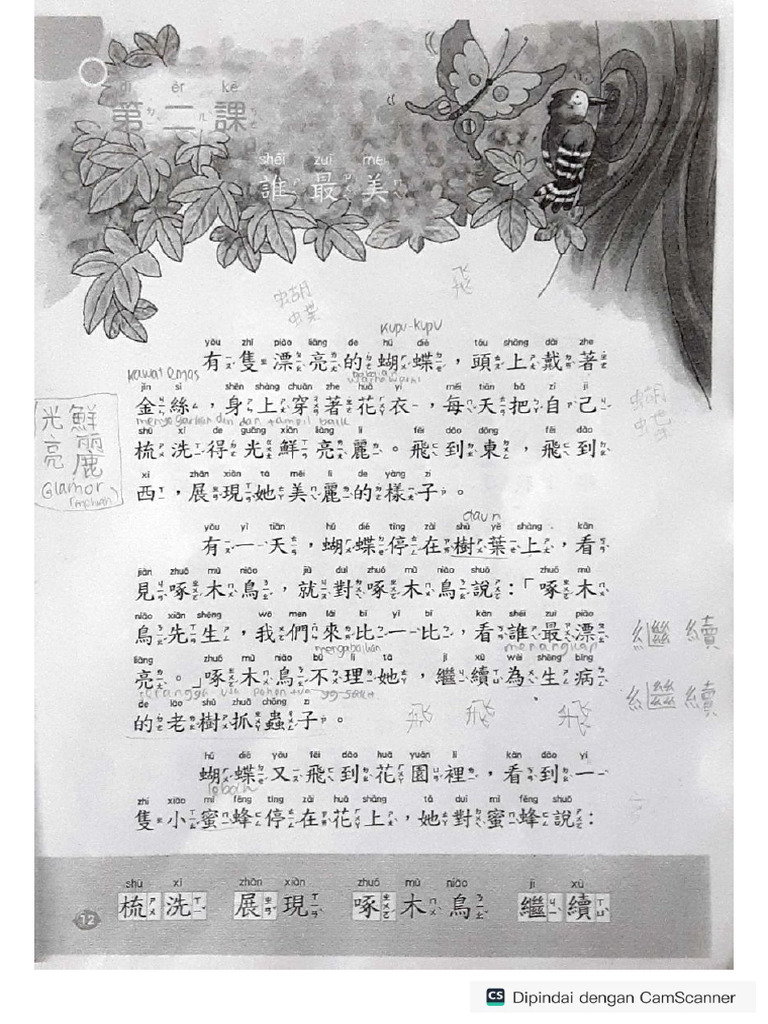 dì èr kè
第二課
shéi zuì měi
誰最美
蝴蝶
飛
kupu-kupu
yǒu zhī piào liàng de hú dié tóu shàng dài zhe
有隻漂亮的蝴蝶，頭上戴著
kawat emas
jīn sī shēn shàng chuān zhe huā yī měi tiān bǎ zì jǐ
金絲，身上穿著花衣，每天把自己
shū xǐ de guāng xiān liàng lì fēi dào dōng fēi dào
梳洗得光鮮亮麗。飛到東，飛到
xī zhǎn xiàn tā měi lì de yàng zi
西，展現她美麗的樣子。
光鮮
亮麗
Glamor
daun
yǒu yì tiān hú dié tíng zài shù yè shàng kàn
有一天，蝴蝶停在樹葉上，看
jiàn zhuó mù niǎo jiù duì zhuó mù niǎo shuō zhuó mù
見啄木鳥，就對啄木鳥說：「啄木
niǎo xiān shēng wǒ men lái bǐ yì bǐ kàn shéi zuì piào
鳥先生，我們來比一比，看誰最漂
mengabaikan
liàng zhuó mù niǎo bù lǐ tā jì xù wèi shēng bìng
亮。」啄木鳥不理她，繼續為生病
de lǎo shù zhuā chóng zi
的老樹抓蟲子。
飛 飛 飛
繼續
繼續
hú dié yòu fēi dào huā yuán lǐ kàn dào yì
蝴蝶又飛到花園裡，看到一
zhī xiǎo mì fēng tíng zài huā shàng tā duì mì fēng shuō
隻小蜜蜂停在花上，她對蜜蜂說：
shū xǐ zhǎn xiàn zhuó mù niǎo jì xù
梳洗 展現 啄木鳥 繼續
12
CS Dipindai dengan CamScanner